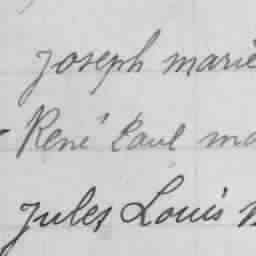 Joseph Marie
René Paul Ma
Jules Louis